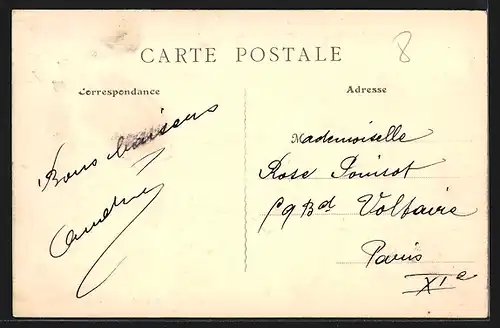 CARTE POSTALE
8
Correspondance
Adresse
Bons baisers
Mademoiselle
Rose
Bd Voltaire
Paris
XIe